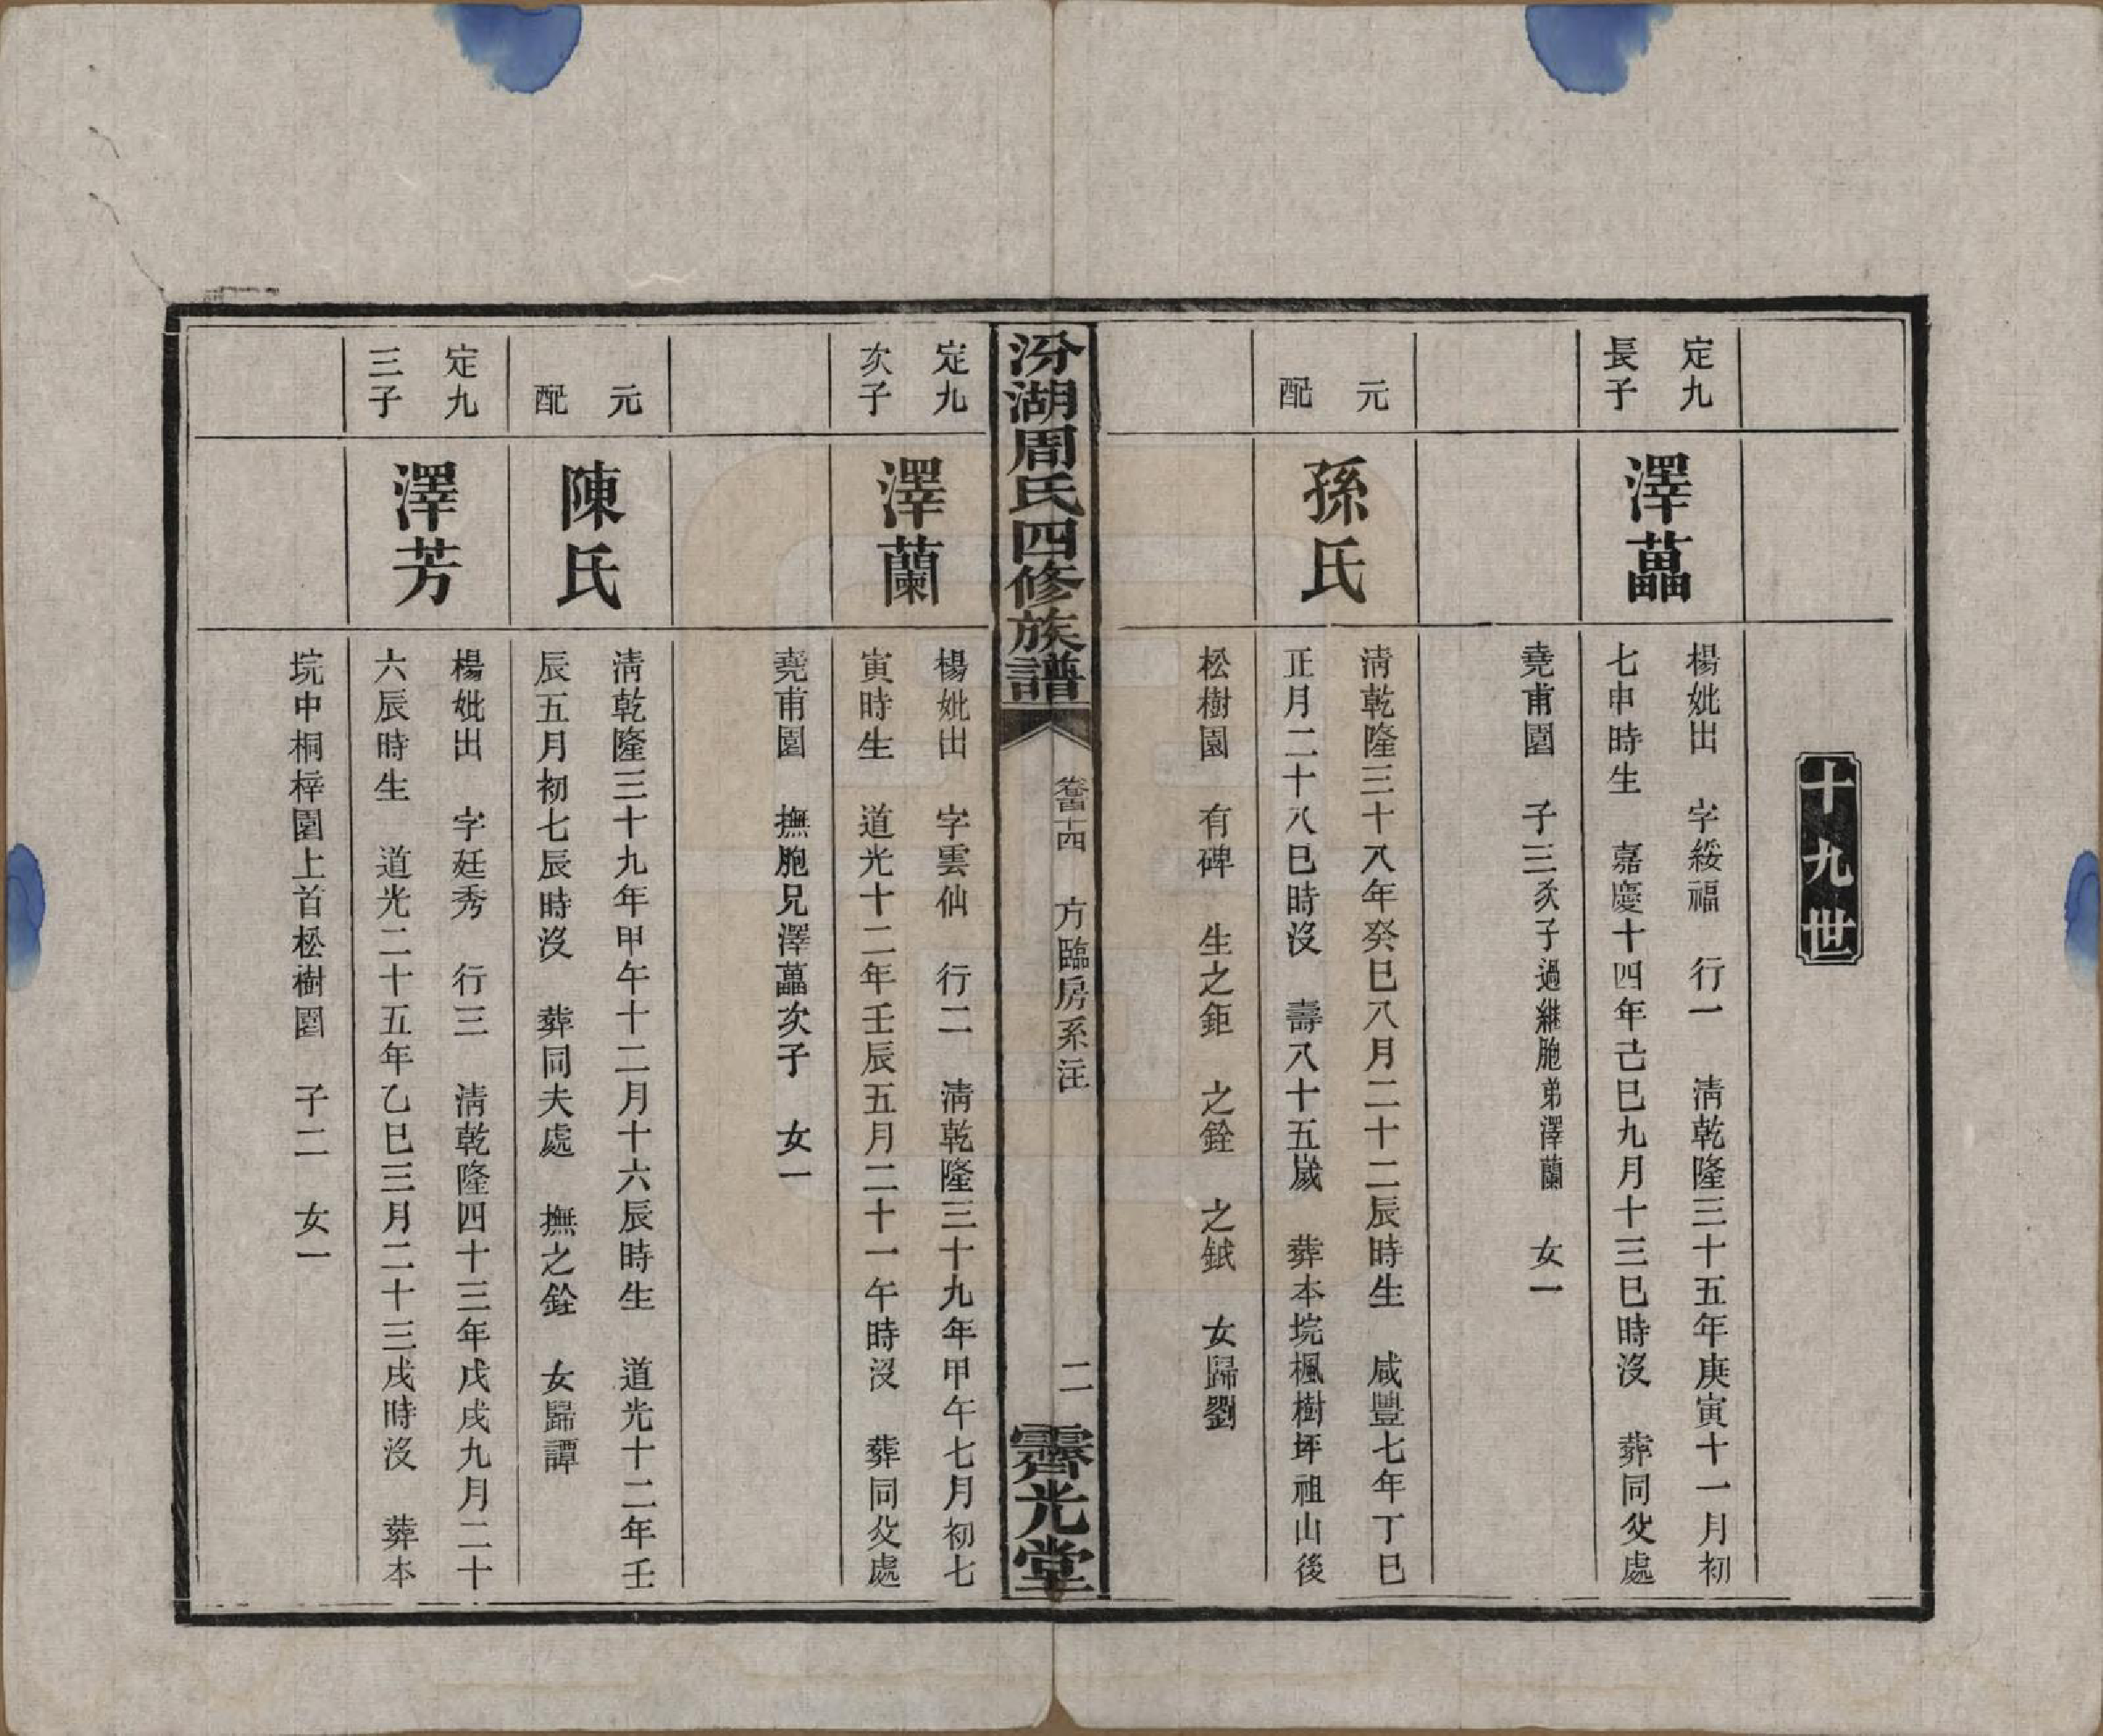 十九世
定九
長子
澤藟
楊妣出　字綏福　行一　清乾隆三十五年庚寅十一月初
七申時生　嘉慶十四年己巳九月十三巳時沒　葬同父處
堯甫園　子三次子過繼胞弟澤蘭　女一
元
配
孫氏
清乾隆三十八年癸巳八月二十二辰時生　咸豐七年丁巳
正月二十八巳時沒　壽八十五歲　葬本垸楓樹坪祖山後
松樹園　有碑　生之鉅　之銓　之鉞　女歸劉
汾湖周氏四修族譜
卷首十四　方臨房系注
二
霽光堂
定九
次子
澤蘭
楊妣出　字雲仙　行二　清乾隆三十九年甲午七月初七
寅時生　道光十二年壬辰五月二十一午時沒　葬同父處
堯甫園　撫胞兄澤藟次子　女一
元
配
陳氏
清乾隆三十九年甲午十二月十六辰時生　道光十二年壬
辰五月初七辰時沒　葬同夫處　撫之銓　女歸譚
定九
三子
澤芳
楊妣出　字廷秀　行三　清乾隆四十三年戊戌九月二十
六辰時生　道光二十五年乙巳三月二十三戌時沒　葬本
垸中桐梓園上首松樹園　子二　女一